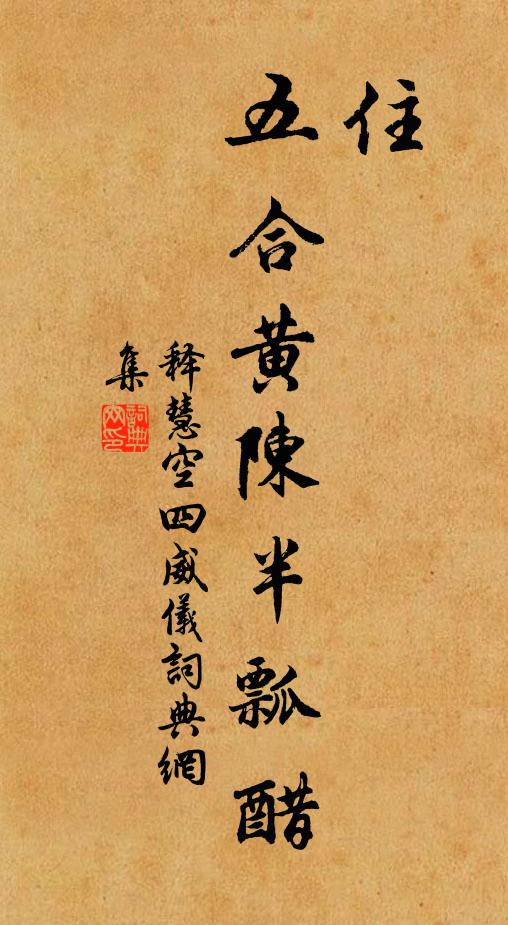 住
五合黄陳半瓢醋
释慧空四威儀詞典網
集
詞典網印